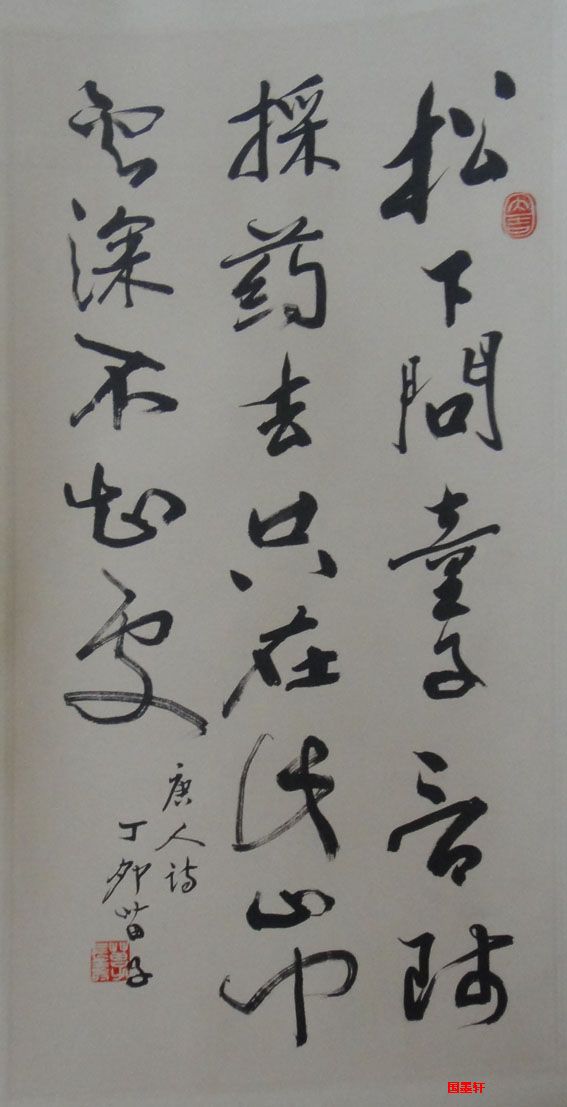 松下問童子言師
採药去只在此山中
雲深不知處
唐人诗
丁卯苗子
国墨轩